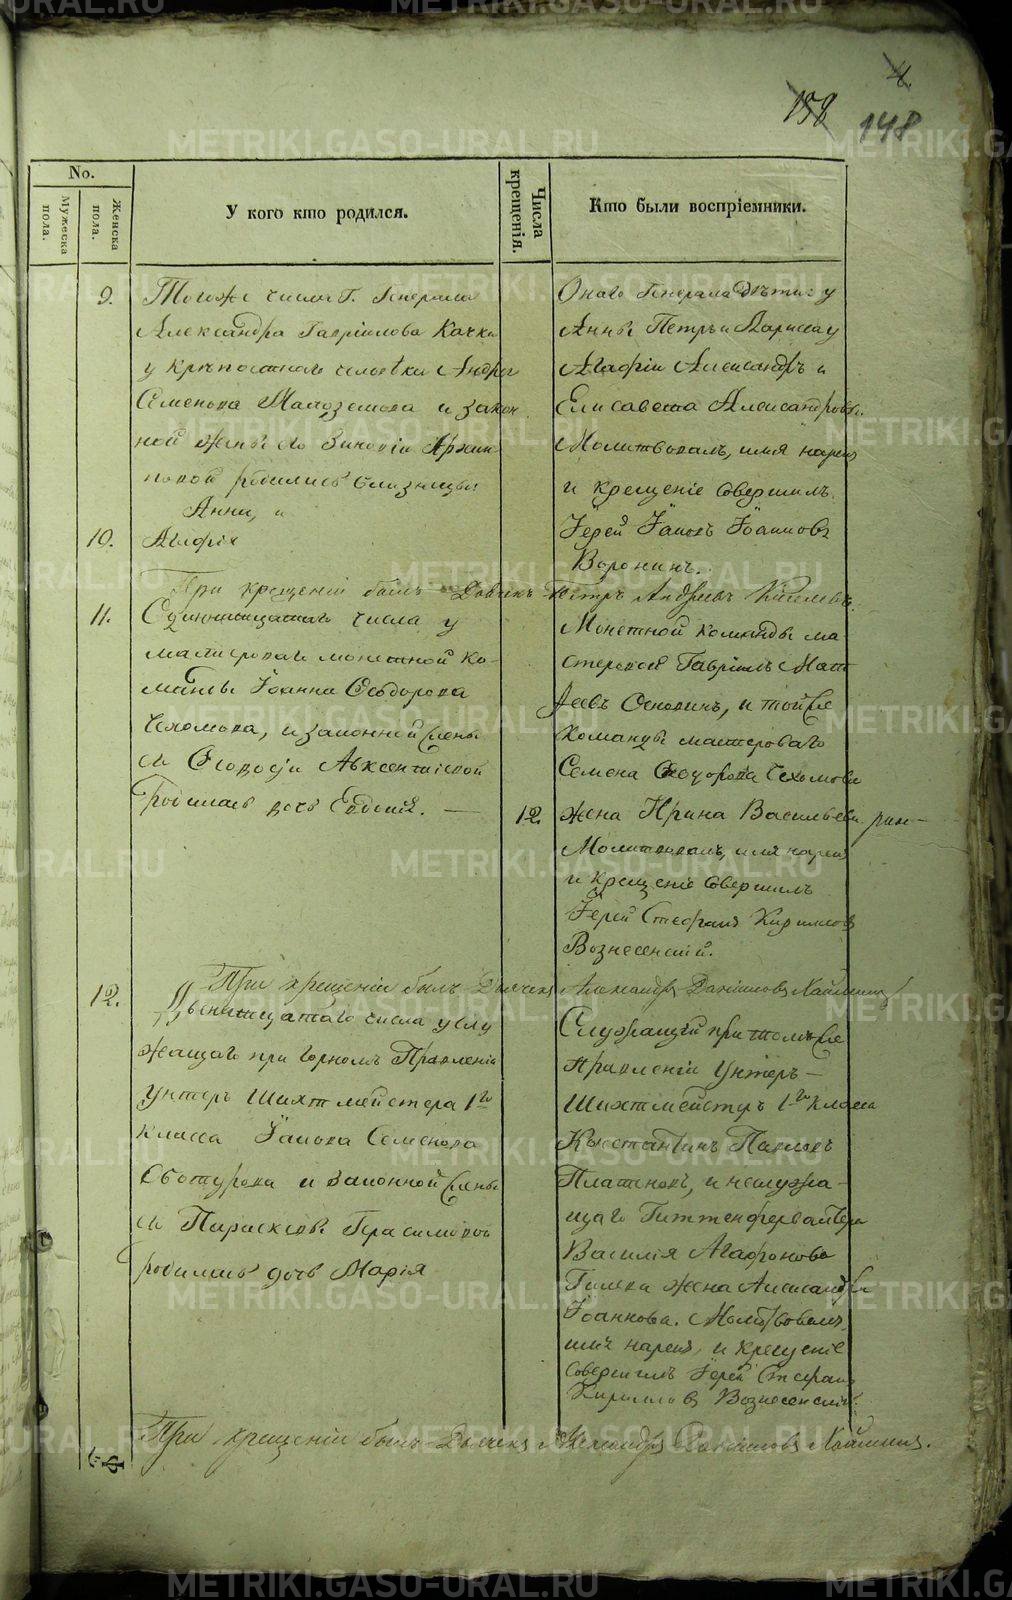 4.
158 148
No.
Мужеска пола.
Женска пола.
У кого кто родился.
Числа крещенiя.
Кто были воспрiемники.
9. Тогоже числа Г. Генерала
Александра Гаврiилова Качки
у крѣпостнаго человѣка Андрея
Семенова и закон
ной жены его Зиновiи Архип
повой родились близнецы
Анна, и
10. Агафiя
Онаго Генерала дѣти: у
Анны Петръ и Лариса у
Агафiи Александръ и
Елисавета Александровы.
Молитвовалъ, имя нарекъ
и крещенiе совершилъ
Iерей Iаковъ Iоанновъ
Воронинъ.
При крещенiи былъ Дьячекъ Петръ Андреевъ Киселевъ.
11. Одиннатцатаго числа у
мастероваго монетной ко-
манды Iоанна Ѳеодорова
Чехомова, и законной жены
его Ѳеодосiи Авксентiевой
родилась дочь Евдокiя. —
12.
Монетной команды ма-
стеровой Гаврiилъ Мат
ѳеевъ , и той же
команды мастероваго
Семена Ѳеодорова Чехомова
жена Ирина Васильева
Молитвовалъ, имя нарекъ
и крещенiе совершилъ
Iерей Стефанъ Кирилловъ
Вознесенскiй.
При крещенiи былъ Дьячекъ Александръ
12. Двенатцатаго числа у слу
жащаго при Горномъ Правленiи
Унтеръ Шихтмейстера 1го
класса Iакова Семенова
и законной жены
его Параскевы Герасимовой
родилась дочь Марiя
Служащiй при томъ же
Правленiи Унтеръ—
Шихтмейстеръ 1го класса
Константинъ Павловъ
, и неслужа-
щаго Гиттенфервалтера
Василiя Агафонова
жена Александра
Iоаннова. Молитвовалъ
имя нарекъ, и крещенiе
совершилъ Iерей Стефанъ
Кирилловъ Вознесенскiй.
При крещенiи былъ Дьячекъ Александръ
METRIKI.GASO-URAL.RU